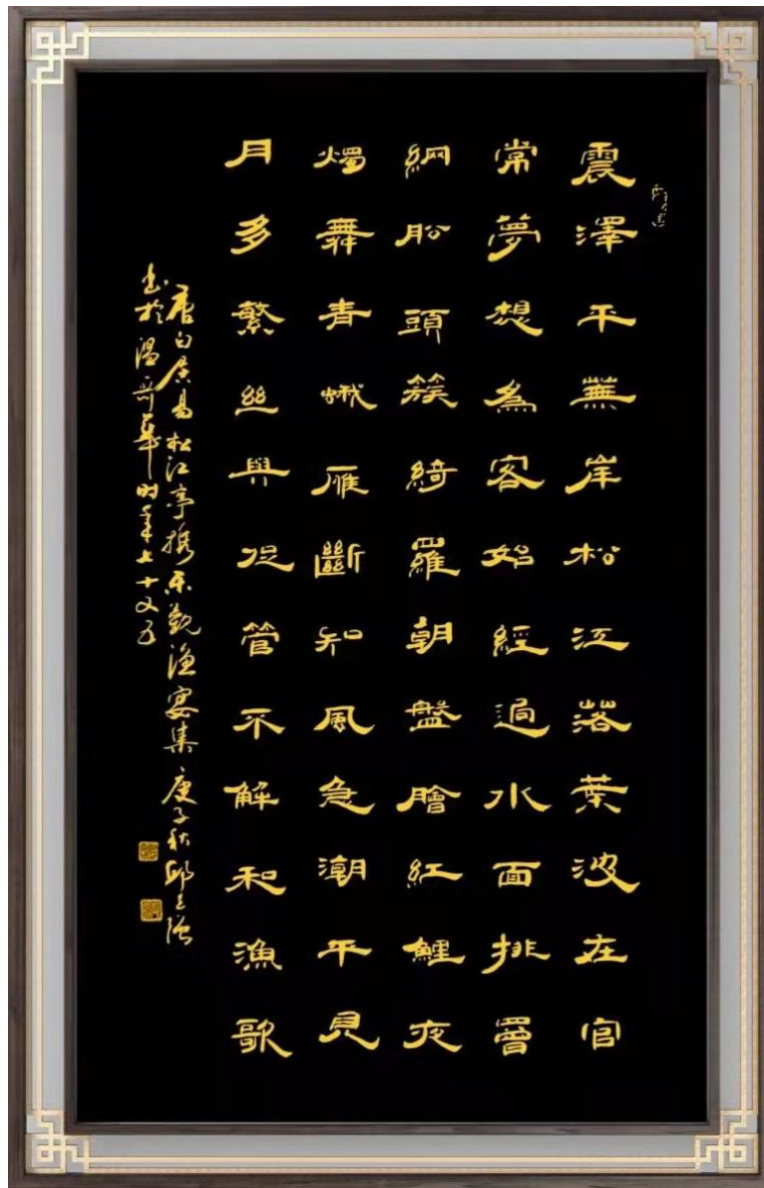 震澤平蕪岸松江落葉波在官
常夢想為客始經過水面排罾
網舩頭簇綺羅朝盤膾紅鯉夜
燭舞青蛾雁斷知風急潮平見
月多繁絲與促管不解和漁歌
唐白居易松江亭携乐觀漁宴集 庚子秋邱
书於温哥華时年七十又五